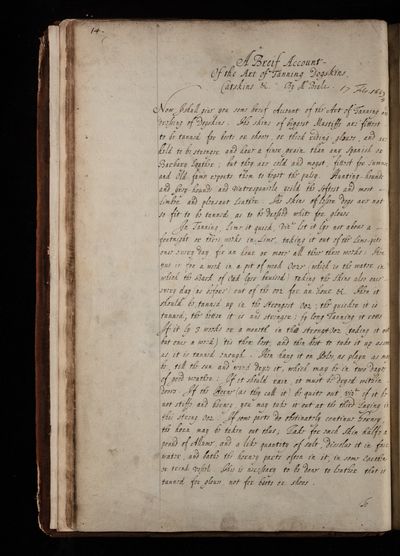 14.
A Breif Account
Of the Art of Tanning Dogskins,
Catskins &c. By Mr Beale. 17 Feb.
Now I shall give you some breif Account of the Art of Tanning
dressing of Dogskins. The skins of biggest Mastiffs are fittest
to be tanned for boots or shooes, or thick riding gloves, and are
held to be stronger and have a finer grain than any Spanish or
Barbary Leather; but they are cold and moyst, fittest for summer
and Old fame reports them to expell the palsy. Hunting-hounds
and Grey-hounds and yeild the softest and most
limber and pleasant Leather. The skins of lesser Dogs are not
so fit to be tanned as to be white for gloves
In Tanning, Lime it quick, vizt. let it lye out about a
fortnight or three weeks in Lime, taking it out of the Lime-pits
once every day for an hour or more all these three weeks. Then
put it for a week in a pit of weak Ooz; which is the water in
which the Bark of Oak lyes bruised; taking the skins also once
every day as before, out of the ooz for an houre &c. Then it
should be tanned up in the strongest Ooz; the quicker it is
tanned, the better it is and stronger: by long Tanning it rots
If it ly 3 weeks or a month in the strong ooz, (taking it out
but once a week) tis then best; and then best to take it up as soon
as it is tanned enough. Then hang it on Poles, as plain as may
be, till the sun and wind dryes it, which may be in two dayes
of good weather: If it should rain, it must be dryed within
doors. If the Horne (as they call it) be quite out vizt. if it be
not stiffe and horney you may take it out at the third laying in
the strong ooz. If some parts do obstinately continue horney,
the horn may be taken out thus. Take for each skin halfe a
pound of Allume, and a like quantity of salt, dissolve it in faire
water, and bathe the horney parts often in it, in some
or vessel. This is necessary to be done to leather that is
tanned for gloves not for boots or shoes.